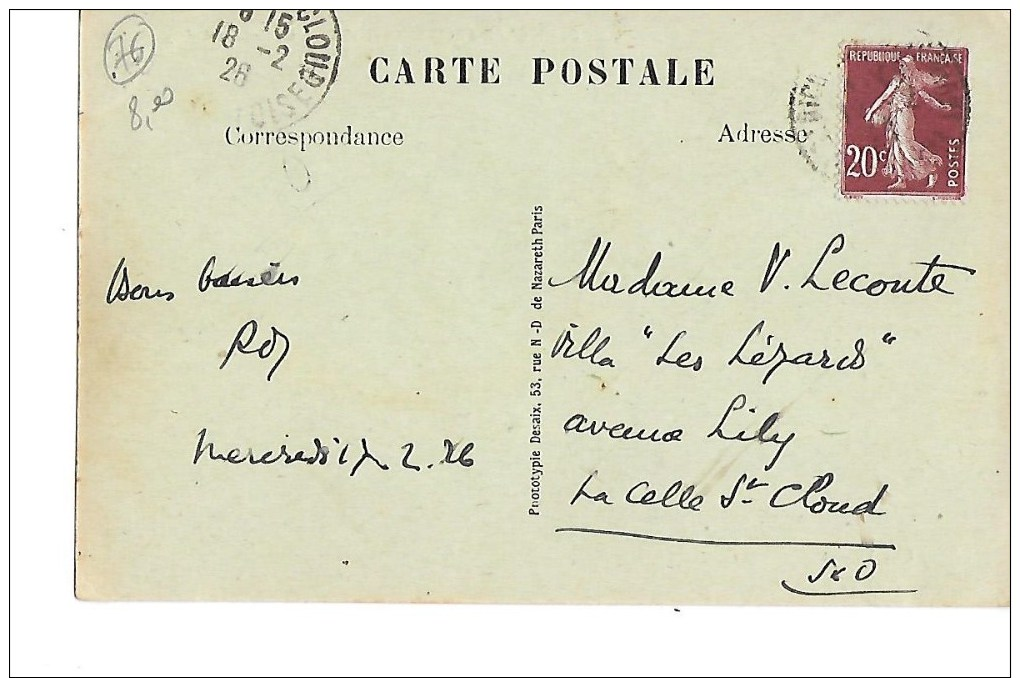 76
8,00
8 15
18 -2
26
CLOUD
OISE
CARTE POSTALE
Correspondance
Adresse
REPUBLIQUE FRANÇAISE
20c
POSTES
Bons baisers
Mercredi 17 2.26
Phototypie Desaix, 53, rue N-D de Nazareth Paris
Madame V. Leconte
Villa "Les Lézards"
avenue Lily
La Celle St Cloud
S&O